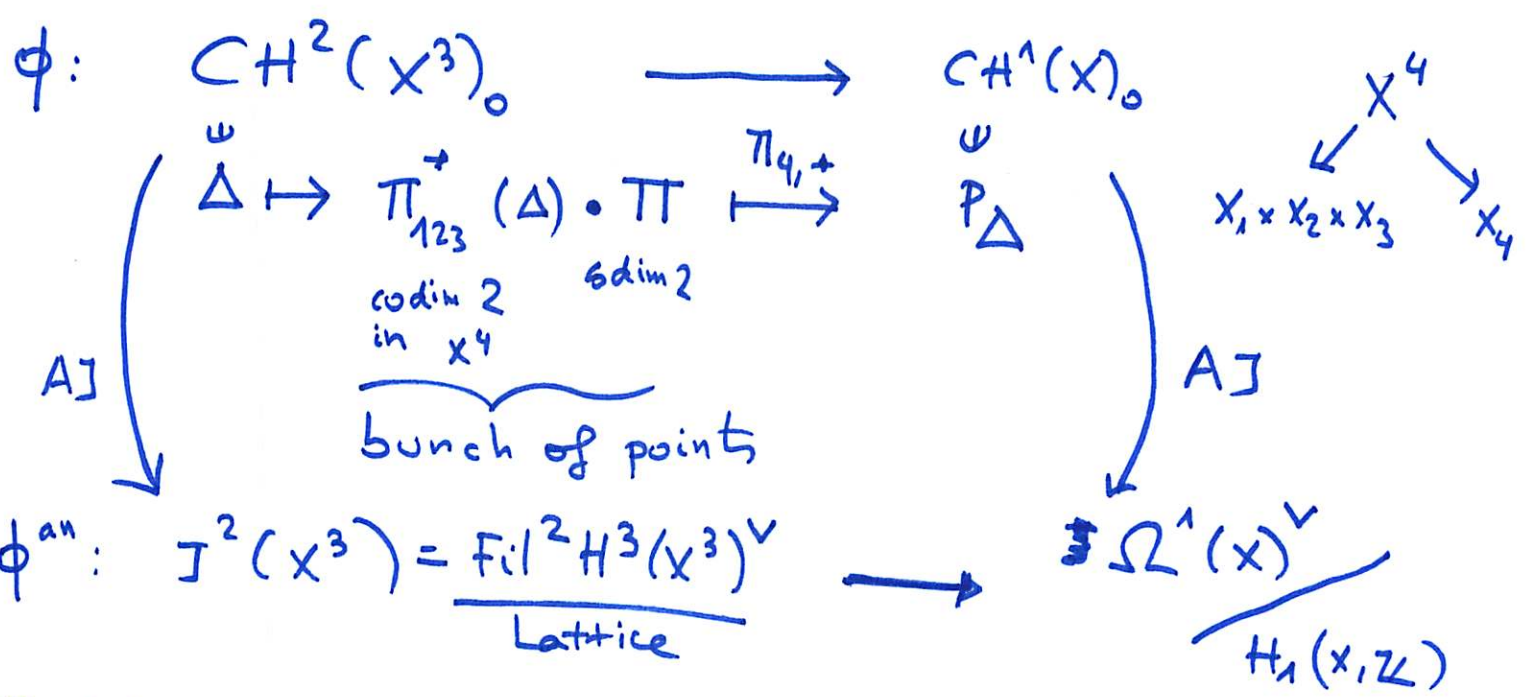 ϕ: CH²(X³)₀ ⟶ CH¹(X)₀ X⁴
Δ ↦ π*₁₂₃(Δ) • Π ↦ P_Δ X₁ × X₂ × X₃ X₄
π₄,*
codim 2 in X⁴
codim 2
bunch of points
AJ
AJ
ϕᵃⁿ: J²(X³) = Fil² H³(X³)^∨ / Lattice ⟶ Ω¹(X)^∨ / H₁(X,ℤ)